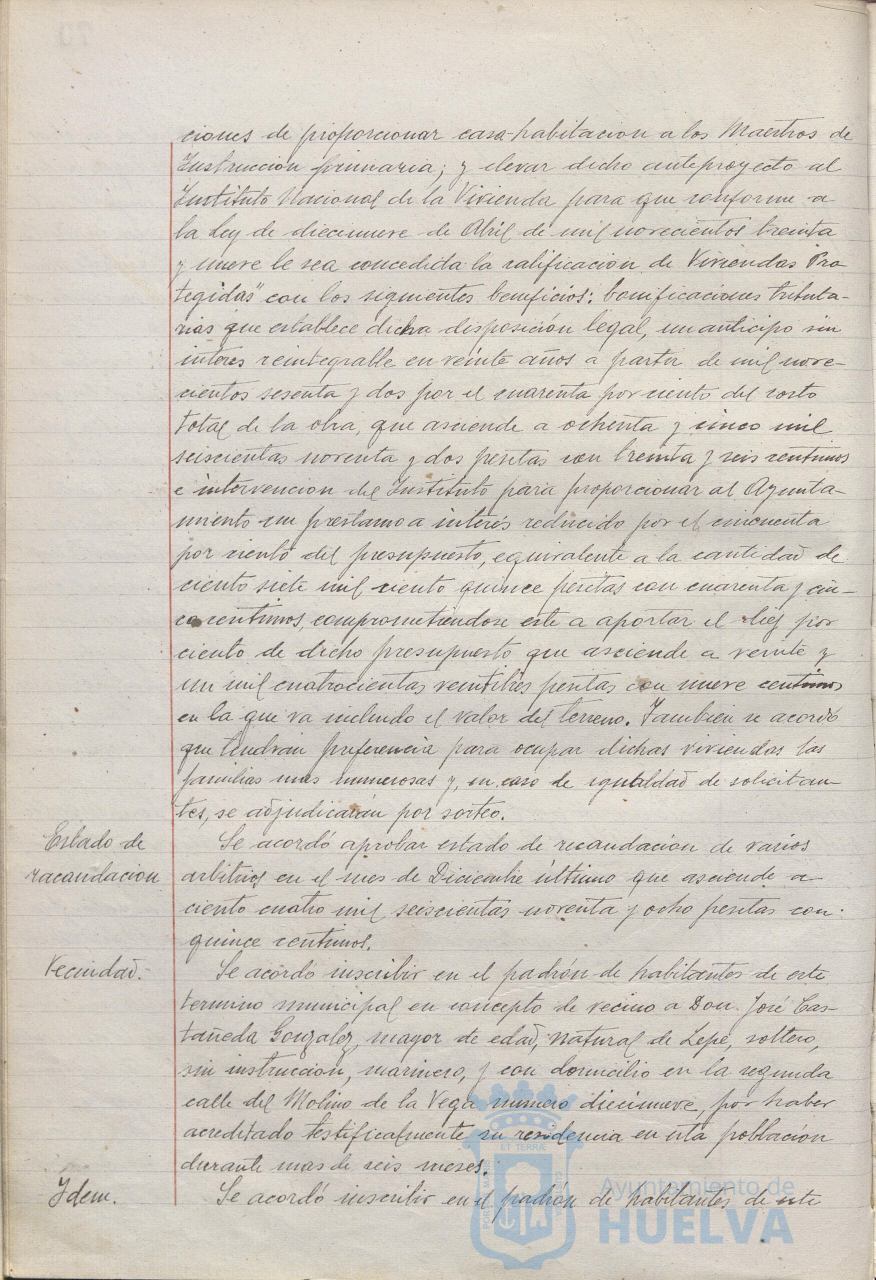 ciones de proporcionar casa-habitacion a los Maestros de
Instruccion primaria; y elevar dicho anteproyecto al
Instituto Nacional de la Vivienda para que conforme a
la Ley de diecinueve de Abril de mil novecientos treinta
y nueve le sea concedida la calificacion de Viviendas Pro
tegidas" con los siguientes beneficios: bonificaciones tributa-
rias que establece dicha disposición legal, un anticipo sin
interes reintegrable en veinte años a partir de mil nove-
cientos sesenta y dos por el cuarenta por ciento del costo
total de la obra, que asciende a ochenta y cinco mil
seiscientas noventa y dos pesetas con treinta y seis centimos
e intervencion del Instituto para proporcionar al Ayunta-
miento un prestamo a interés reducido por el cincuenta
por ciento del presupuesto, equivalente a la cantidad de
ciento siete mil ciento quince pesetas con cuarenta y cin-
co centimos, comprometiendose este a aportar el diez por
ciento de dicho presupuesto que asciende a veinte y
un mil cuatrocientas veintitres pesetas con nueve centimos
en la que va incluido el valor del terreno. Tambien se acordó
que tendran preferencia para ocupar dichas viviendas las
familias mas numerosas y, en caso de igualdad de solicitan-
tes, se adjudicarán por sorteo.
Estado de
racaudacion
Se acordó aprobar estado de recaudación de varios
arbitrios en el mes de Diciembre último que asciende a
ciento cuatro mil seiscientas noventa y ocho pesetas con
quince centimos.
Vecindad.-
Se acordó inscribir en el padrón de habitantes de este
termino municipal en concepto de vecino a Don José Cas-
tañeda Gonzalez, mayor de edad, natural de Lepe, soltero,
sin instruccion, marinero, y con domicilio en la segunda
calle del Molino de la Vega numero diecinueve, por haber
acreditado testificalmente su residencia en esta población
durante mas de seis meses.
Idem.
Se acordó inscribir en el padrón de habitantes de este
Ayuntamiento de
HUELVA